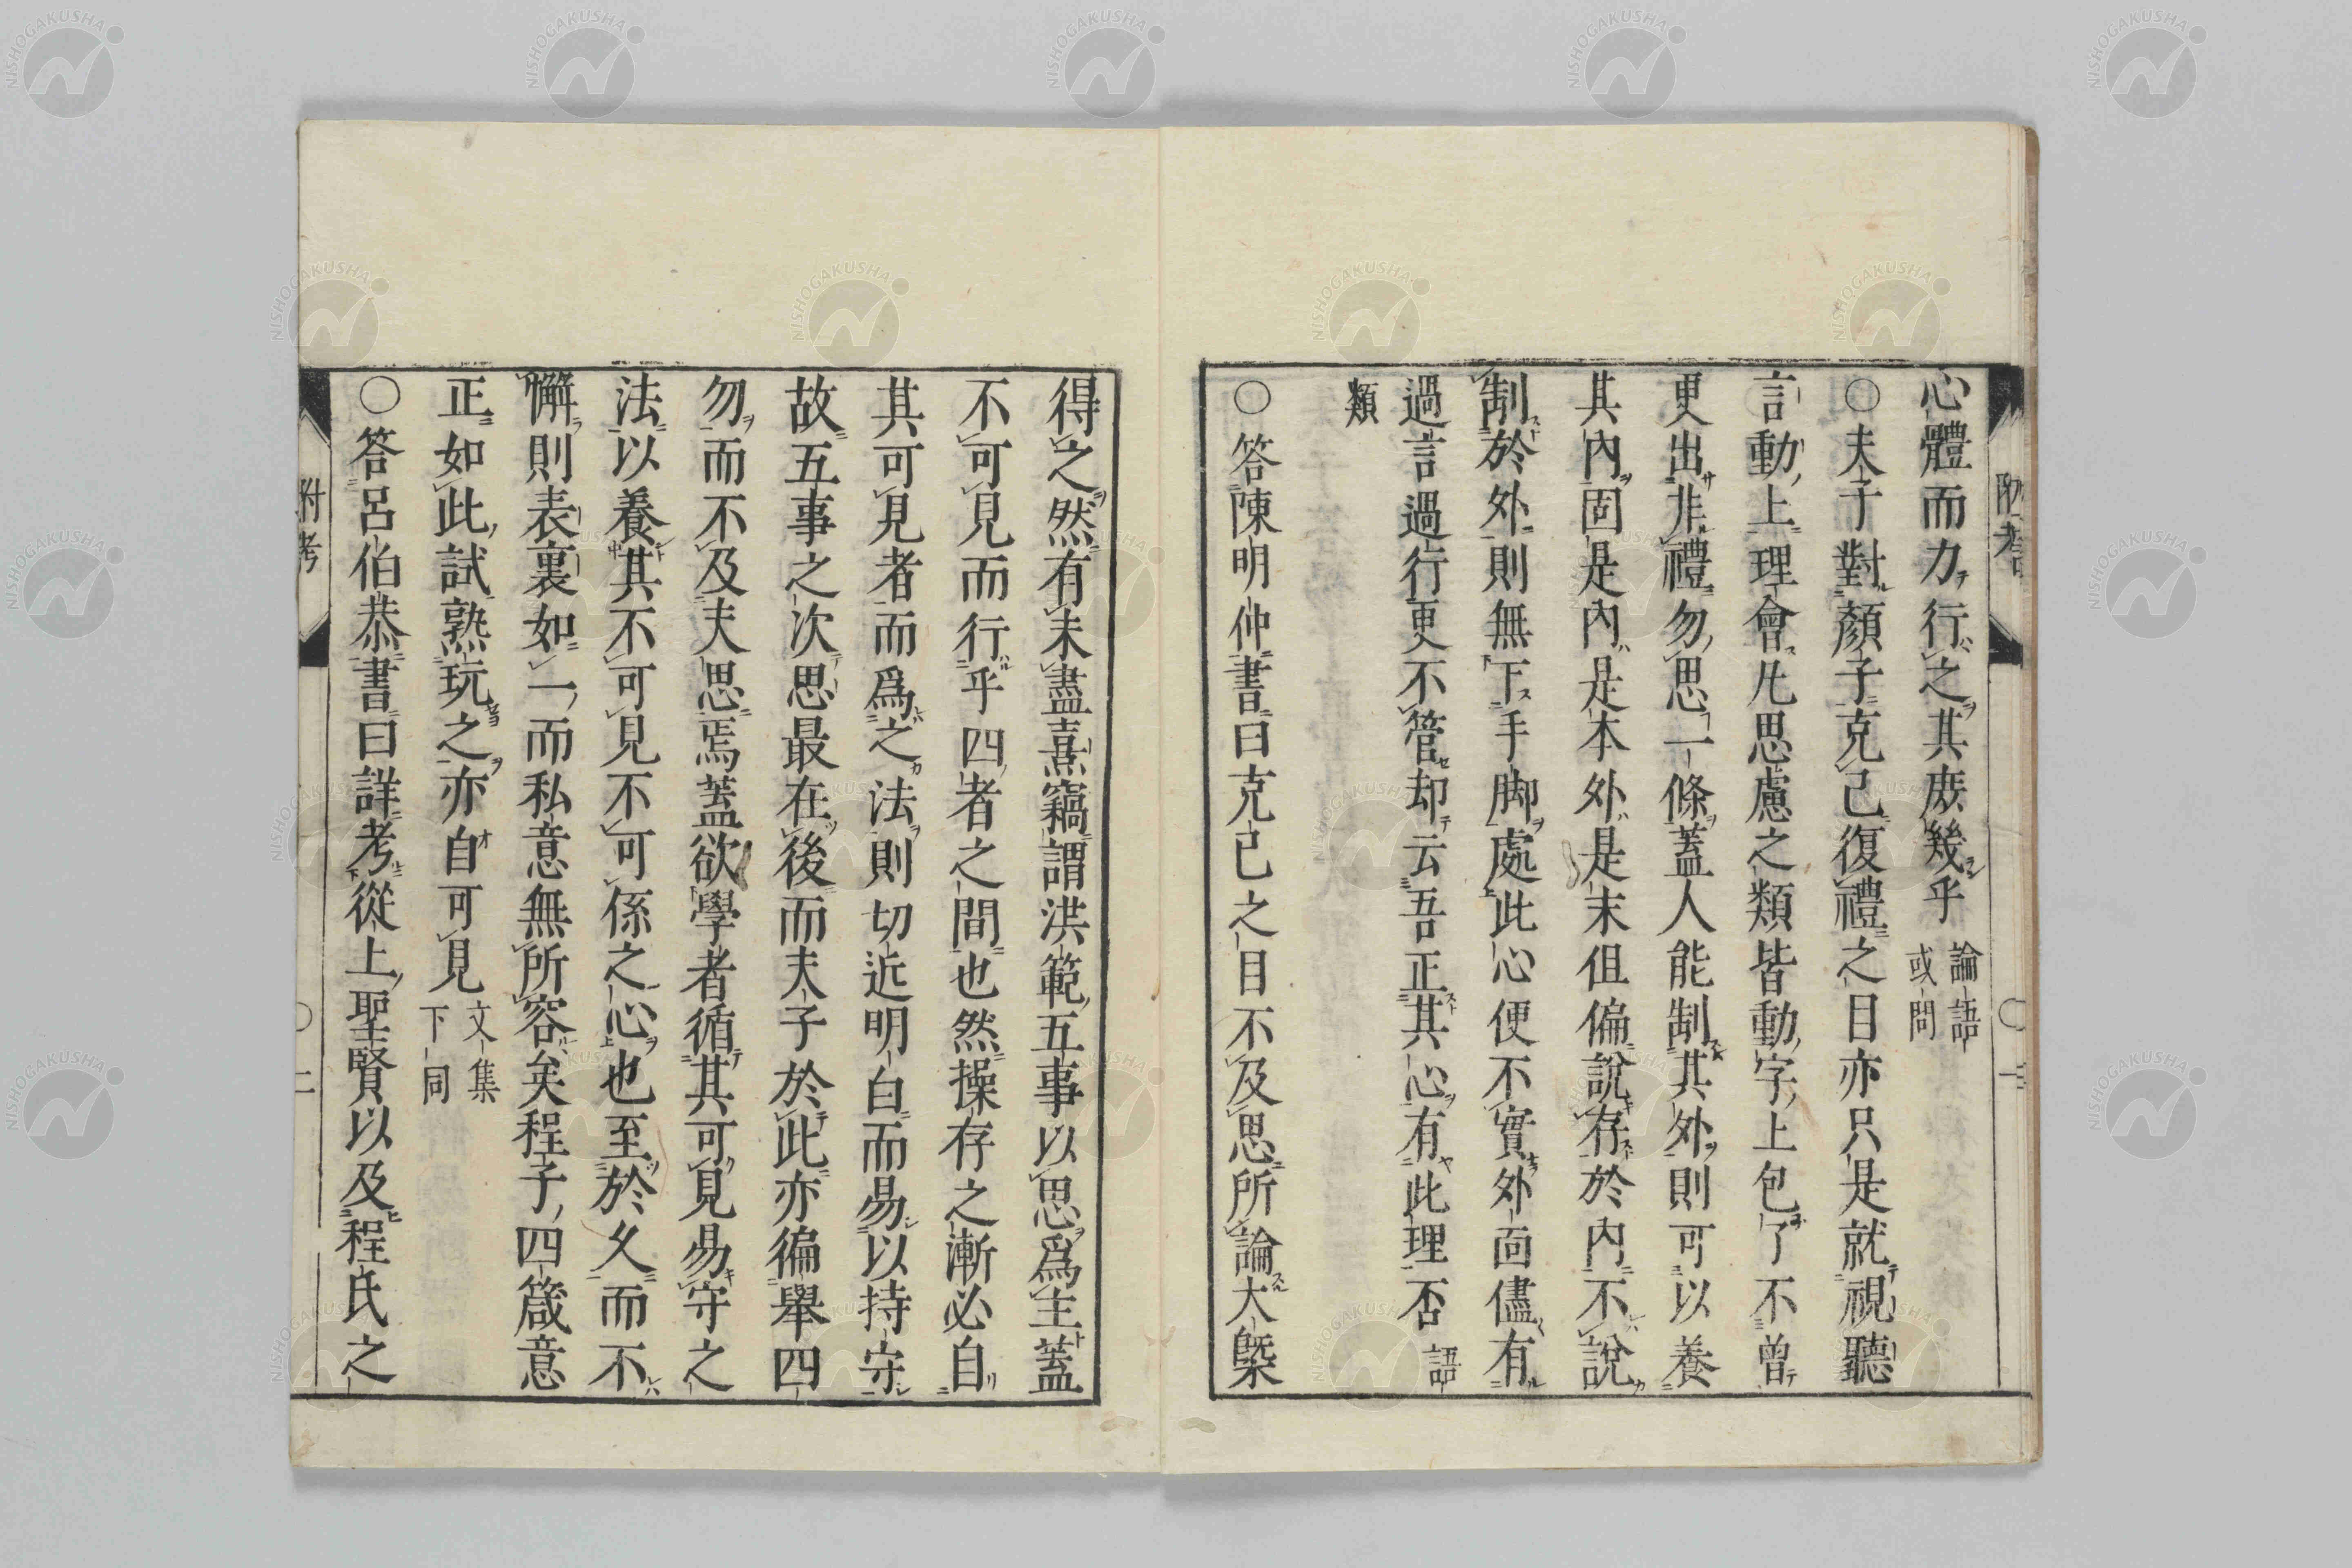 心體而力行之其庶幾乎論語或問
○夫子對顏子克己復禮之目亦只是就視聽
言動上理會凡思慮之類皆動字上包了不曾
更出非禮勿思一條蓋人能制其外則可以養
其內固是內是本外是末但偏說存於內不說
制於外則無下手脚處此心便不實外面儘有
過言過行更不管却云吾正其心有此理否語
類
○答陳明仲書曰克己之目不及思所論大槩
得之然有未盡熹竊謂洪範五事以思爲主蓋
不可見而行乎四者之間也然操存之漸必自
其可見者而爲之法則切近明白而易以持守
故五事之次思最在後而夫子於此亦徧舉四
勿而不及夫思焉蓋欲學者循其可見易守之
法以養其不可見不可係之心也至於久而不
懈則表裏如一而私意無所容矣程子四箴意
正如此試熟玩之亦自可見文集下同
○答呂伯恭書曰詳考從上聖賢以及程氏之
附考
○二
NISHOGAKUSHA